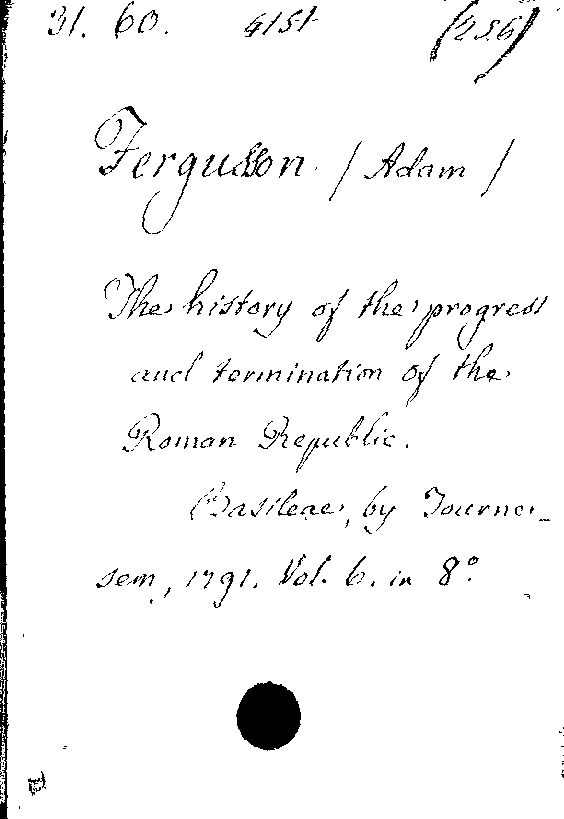 31. 60. 4151 (256)
Fergusson / Adam /
The history of the progress
and termination of the
Roman Republic.
Basileae, by Tournei_
sem, 1791. Vol. 6. in 8°.